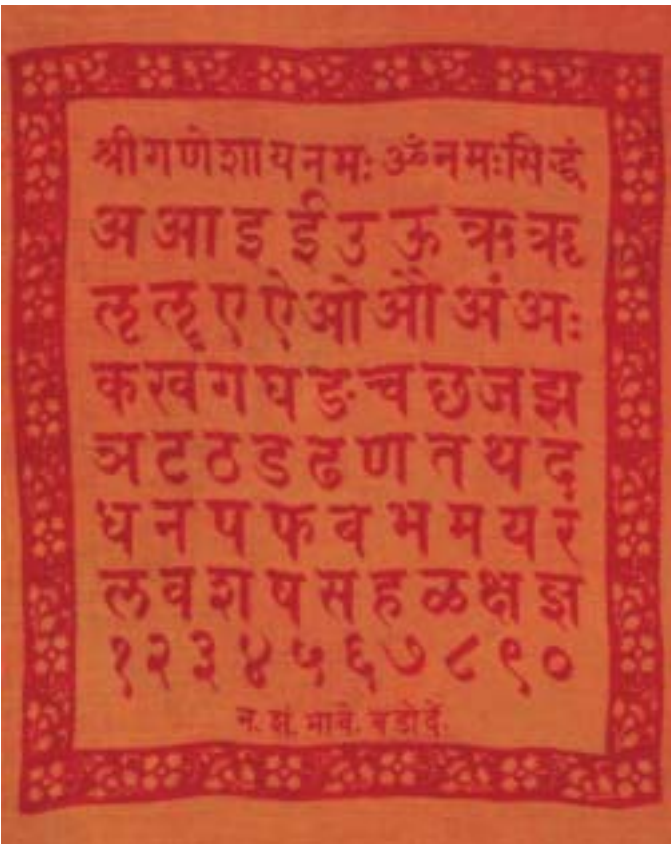 श्रीगणेशायनमः ॐनमःसिद्धं
अ आ इ ई उ ऊ ऋ ॠ
ऌ ॡ ए ऐ ओ औ अं अः
क ख ग घ ङ च छ ज झ
ञ ट ठ ड ढ ण त थ द
ध न प फ ब भ म य र
ल व श ष स ह ळ क्ष ज्ञ
१ २ ३ ४ ५ ६ ७ ८ ९ ०
न. झं. भावे. बडोदें.